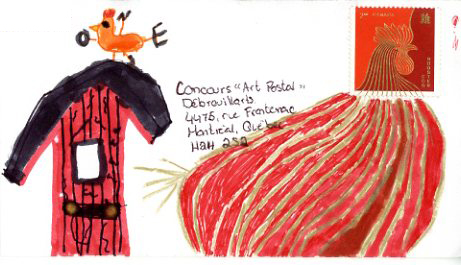 N
O E
Concours "Art Postal"
Débrouillarts
4475, rue Frontenac
Montréal, Québec
H2H 2S2
CANADA
ROOSTER